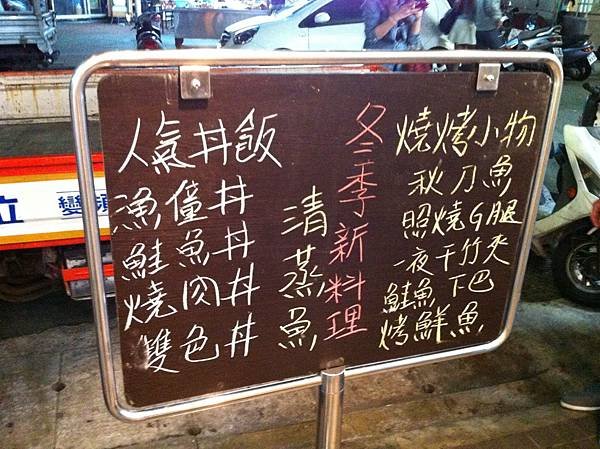 人氣丼飯
漁僮丼
鮭魚丼
燒肉丼
雙色丼
清蒸魚
冬季新料理
燒烤小物
秋刀魚
照燒G腿
一夜干竹夾
鮭魚下巴
烤鮮魚
位
變頻